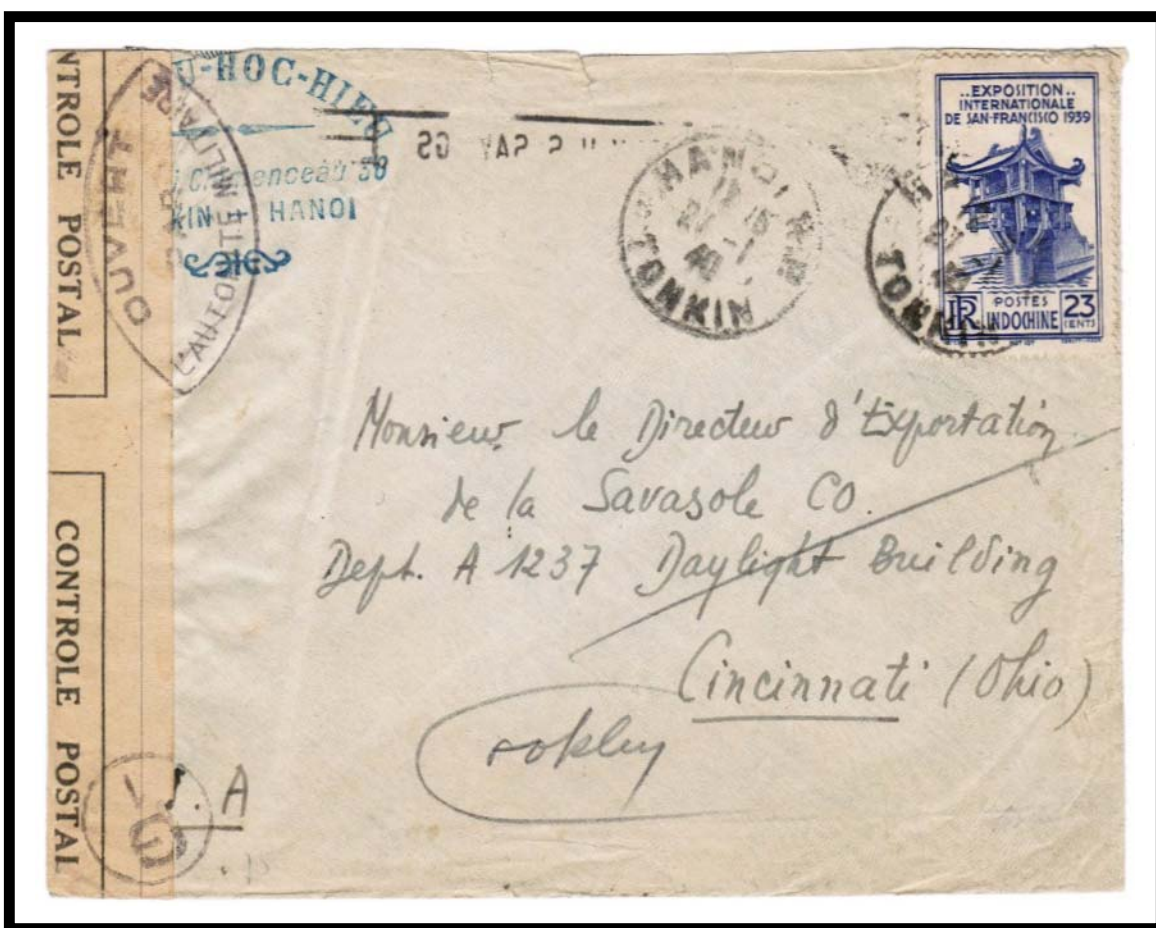 CONTROLE POSTAL
CONTROLE POSTAL
OUVERT
L'AUTORITÉ MILITAIRE
U-HOC-HIEU
Clemenceau 38
KIN HANOI
HANOI R.P.
TONKIN
TONKIN
..EXPOSITION..
INTERNATIONALE
DE SAN-FRANCISCO 1939
RF
POSTES
INDOCHINE
23
CENTS
Monsieur le Directeur d'Exportation
de la Savasole Co.
Dept. A 1237 Daylight Building
Cincinnati (Ohio)
. A